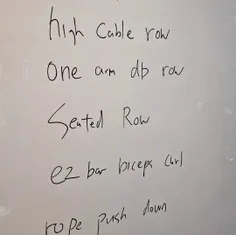 high Cable row
one arm db row
Seated Row
ez bar biceps curl
rope push down